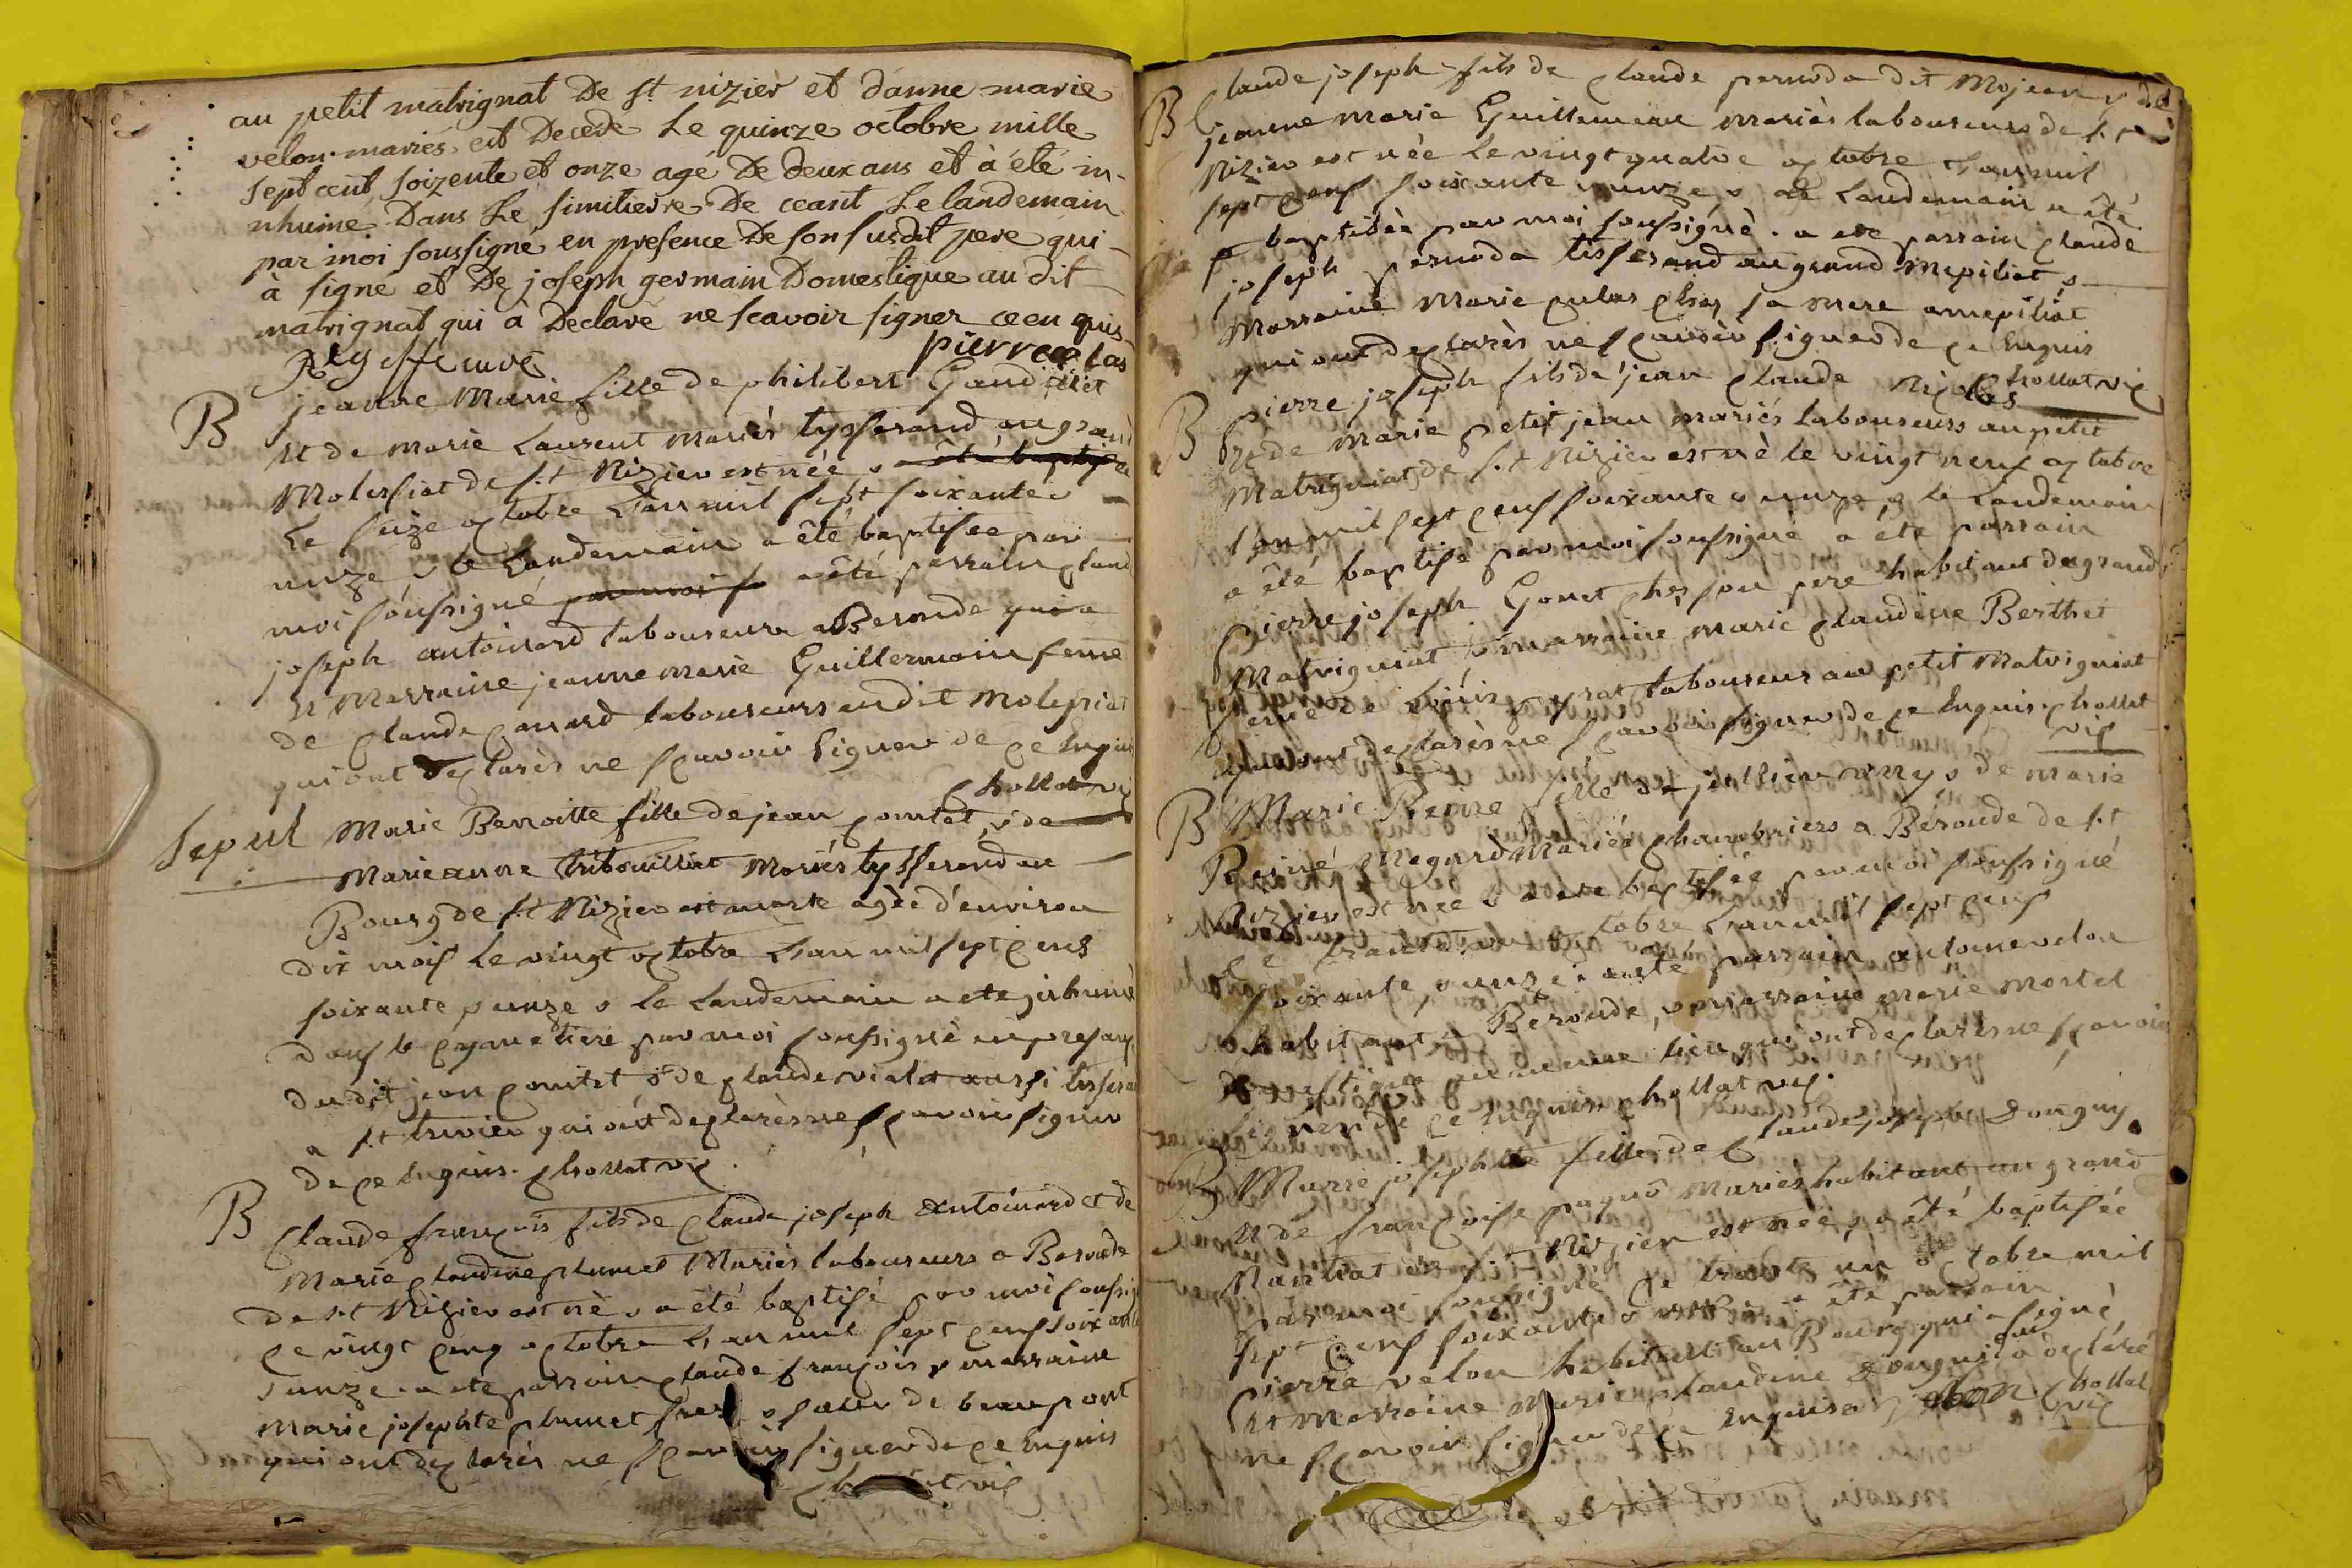 au petit matrignat De st nizier et d'anne marie
velon mariés est Decede Le quinze octobre mille
sept cent soizente et onze agé De deux ans et à été in-
nhumé Dans Le simitierre De ceant Le landemain
par moi soussigné en presence De son susdit pere qui
à signé et De joseph germain Domestique au dit
matrignat qui à Declaré ne scavoir signer ce en quis
pierre
B jeanne Marie fille de philibert
et de marie Laurent mariés tysserand au grand
de st Nizier est née & été baptisée
Le seize octobre L'an mil sept soixante &
unze & le Landemain a été baptisée par
moi soussigné par moi s a été parrain claud
joseph antoinard laboureur a Beronde qui a
et Marraine jeanne marie Guillermain feme
de claude laboureurs audit
qui ont declarés ne scavoir signer de ce Enquis
chollat vic
Sepul Marie Benoitte fille de jean comtet & de
Marie anne tribouillet Mariés tysserand au
Bourg de st Nizier est morte agée d'environ
dix mois le vingt octobre L'an mil sept cens
soixante & unze & le Landemain a été inhumé
dans le cymetiere par moi soussigné en presance
dudit jean comtet & de claude violet aussi tissera
a st trivier qui ont declarés ne scavoir signer
de ce Enquis. chollat vic
B Claude françois fils de claude joseph Antoinard et de
Marie claudine plumet Mariés laboureurs a Beronde
de st Nizier est né & a été baptisé par moi soussig
Le vingt cinq octobre L'an mil sept cens soixante
& unze. a été parrain claude françois & marraine
marie josephte plumet frere & soeur de beaupont
qui ont declarés ne scavoir signer de ce Enquis
vic
B Claude joseph fils de claude pernoda dit Mojean & de
jeanne Marie Guillemeau mariés laboureurs de st
Nizier est née Le vingt quatre octobre L'an mil
sept cens soixante & unze & Le Landemain a été
baptisée par moi soussigné. a été parrain claude
joseph pernoda tisserand au grand &
Marraine Marie chez sa mere
qui ont declarés ne scavoir signer de ce Enquis
chollat vic
B pierre joseph fils de jean claude Nicolas
& de Marie petit jean mariés laboureurs au petit
Matrigniat de st Nizier est né le vingt neuf octobre
L'an mil sept cens soixante & unze & le Landemain
a été baptisé par moi soussigné a été parrain
Pierre joseph Gonet chez son pere habitant du grand
Matrigniat & marraine marie claudine Berthet
feme de laboureur au petit Matrigniat
qui ont declarés ne scavoir signer de ce Enquis. chollat
vic
B Marie Reine fille de & de Marie
Reine Mariés a Beronde de st
Nizier est née & a été baptisée par moi soussigné
Le trante octobre L'an mil sept cens
soixante & unze. a été parrain antoine velon
habitant a Beronde, & marraine marie mortel
domestique au meme lieu qui ont declarés ne scavoir
signer de ce Enquis chollat vic.
B Marie josephte fille de Claude joseph
et de françoise Mariés habitant au grand
de st Nizier est née & a été baptisée
par moi soussigné Le trante un octobre mil
sept cens soixante & unze a été parrain
Pierre velon habitant au Bourg qui a signé
Et Marraine Marie claudine qui a declaré
ne scavoir signer de ce Enquis velon chollat
vic